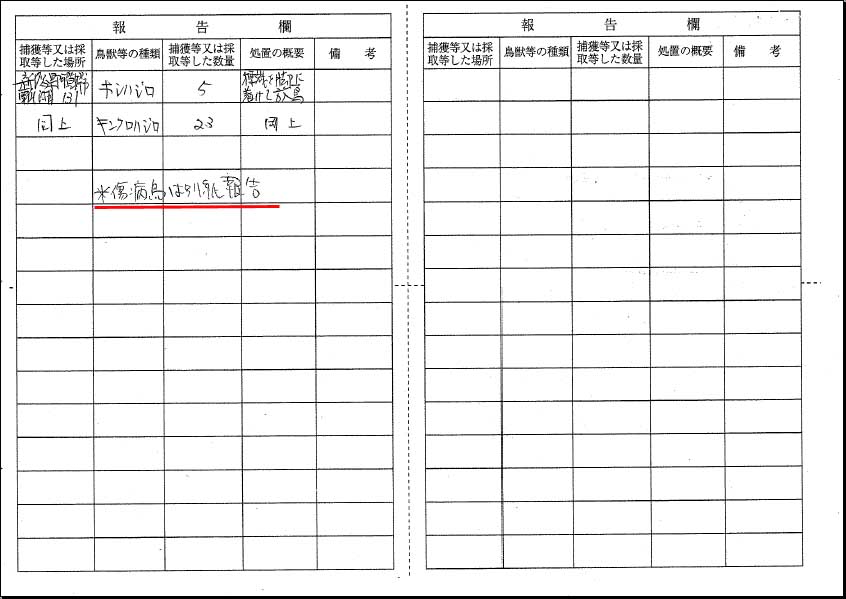 報告欄
捕獲等又は採取等した場所 鳥獣等の種類 捕獲等又は採取等した数量 処置の概要 備考
ホシハジロ 5
同上 キンクロハジロ 23 同上
※傷病鳥は別紙報告
報告欄
捕獲等又は採取等した場所 鳥獣等の種類 捕獲等又は採取等した数量 処置の概要 備考